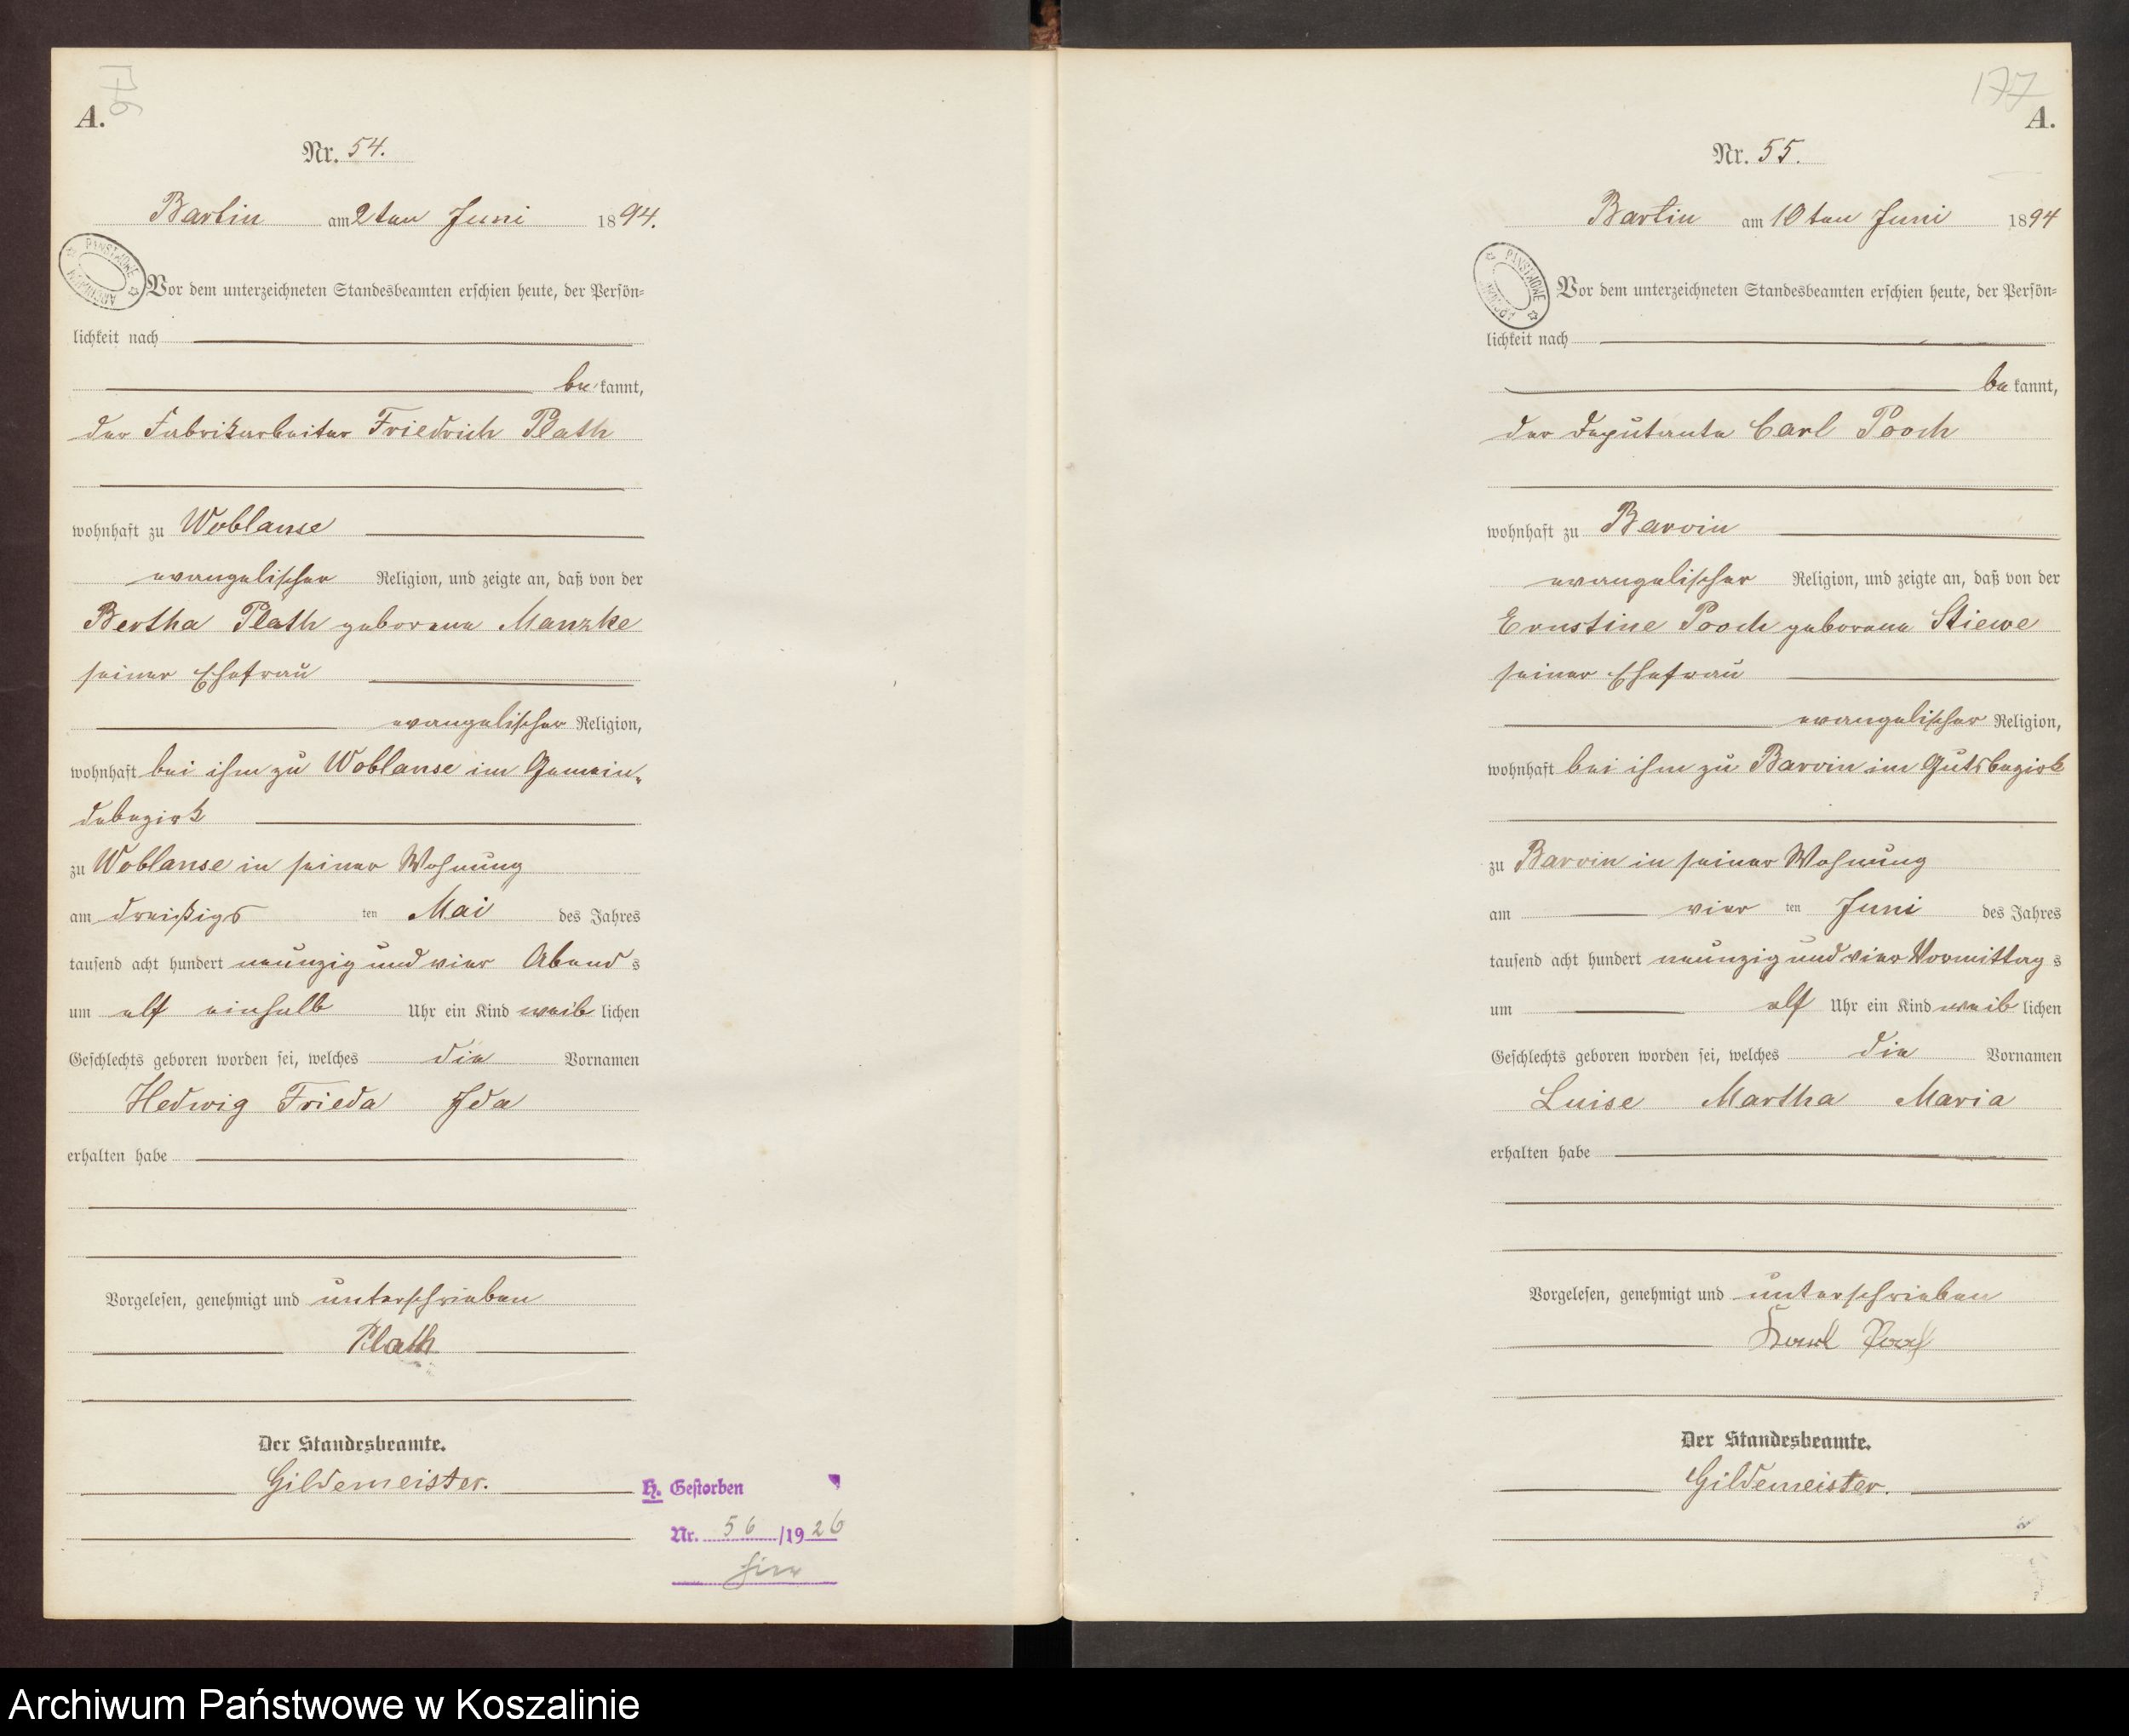 176
A.
Nr. 54.
Bartin am 2ten Juni 1894.
PAŃSTWOWE ARCHIWUM
Vor dem unterzeichneten Standesbeamten erschien heute, der Persön-
lichkeit nach
be kannt,
der Fabrikarbeiter Friedrich Plath
wohnhaft zu Woblanse
evangelischer Religion, und zeigte an, daß von der
Bertha Plath geborene Manzke
seiner Ehefrau
evangelischer Religion,
wohnhaft bei ihm zu Woblanse im Gemein-
debezirk
zu Woblanse in seiner Wohnung
am dreißigs ten Mai des Jahres
tausend acht hundert neunzig und vier Abend s
um elf einhalb Uhr ein Kind weib lichen
Geschlechts geboren worden sei, welches die Vornamen
Hedwig Frieda Ida
erhalten habe
Vorgelesen, genehmigt und unterschrieben
Plath
Der Standesbeamte.
Gildemeister.
H. Gestorben
Nr. 56 /1926
177
A.
Nr. 55.
Bartin am 10ten Juni 1894
PAŃSTWOWE ARCHIWUM
Vor dem unterzeichneten Standesbeamten erschien heute, der Persön-
lichkeit nach
be kannt,
der Deputante Carl Pooch
wohnhaft zu Barvin
evangelischer Religion, und zeigte an, daß von der
Ernstine Pooch geborene Stiewe
seiner Ehefrau
evangelischer Religion,
wohnhaft bei ihm zu Barvin im Gutsbezirk
zu Barvin in seiner Wohnung
am vier ten Juni des Jahres
tausend acht hundert neunzig und vier Vormittag s
um elf Uhr ein Kind weib lichen
Geschlechts geboren worden sei, welches die Vornamen
Luise Martha Maria
erhalten habe
Vorgelesen, genehmigt und unterschrieben
Karl Pooch
Der Standesbeamte.
Gildemeister.
Archiwum Państwowe w Koszalinie